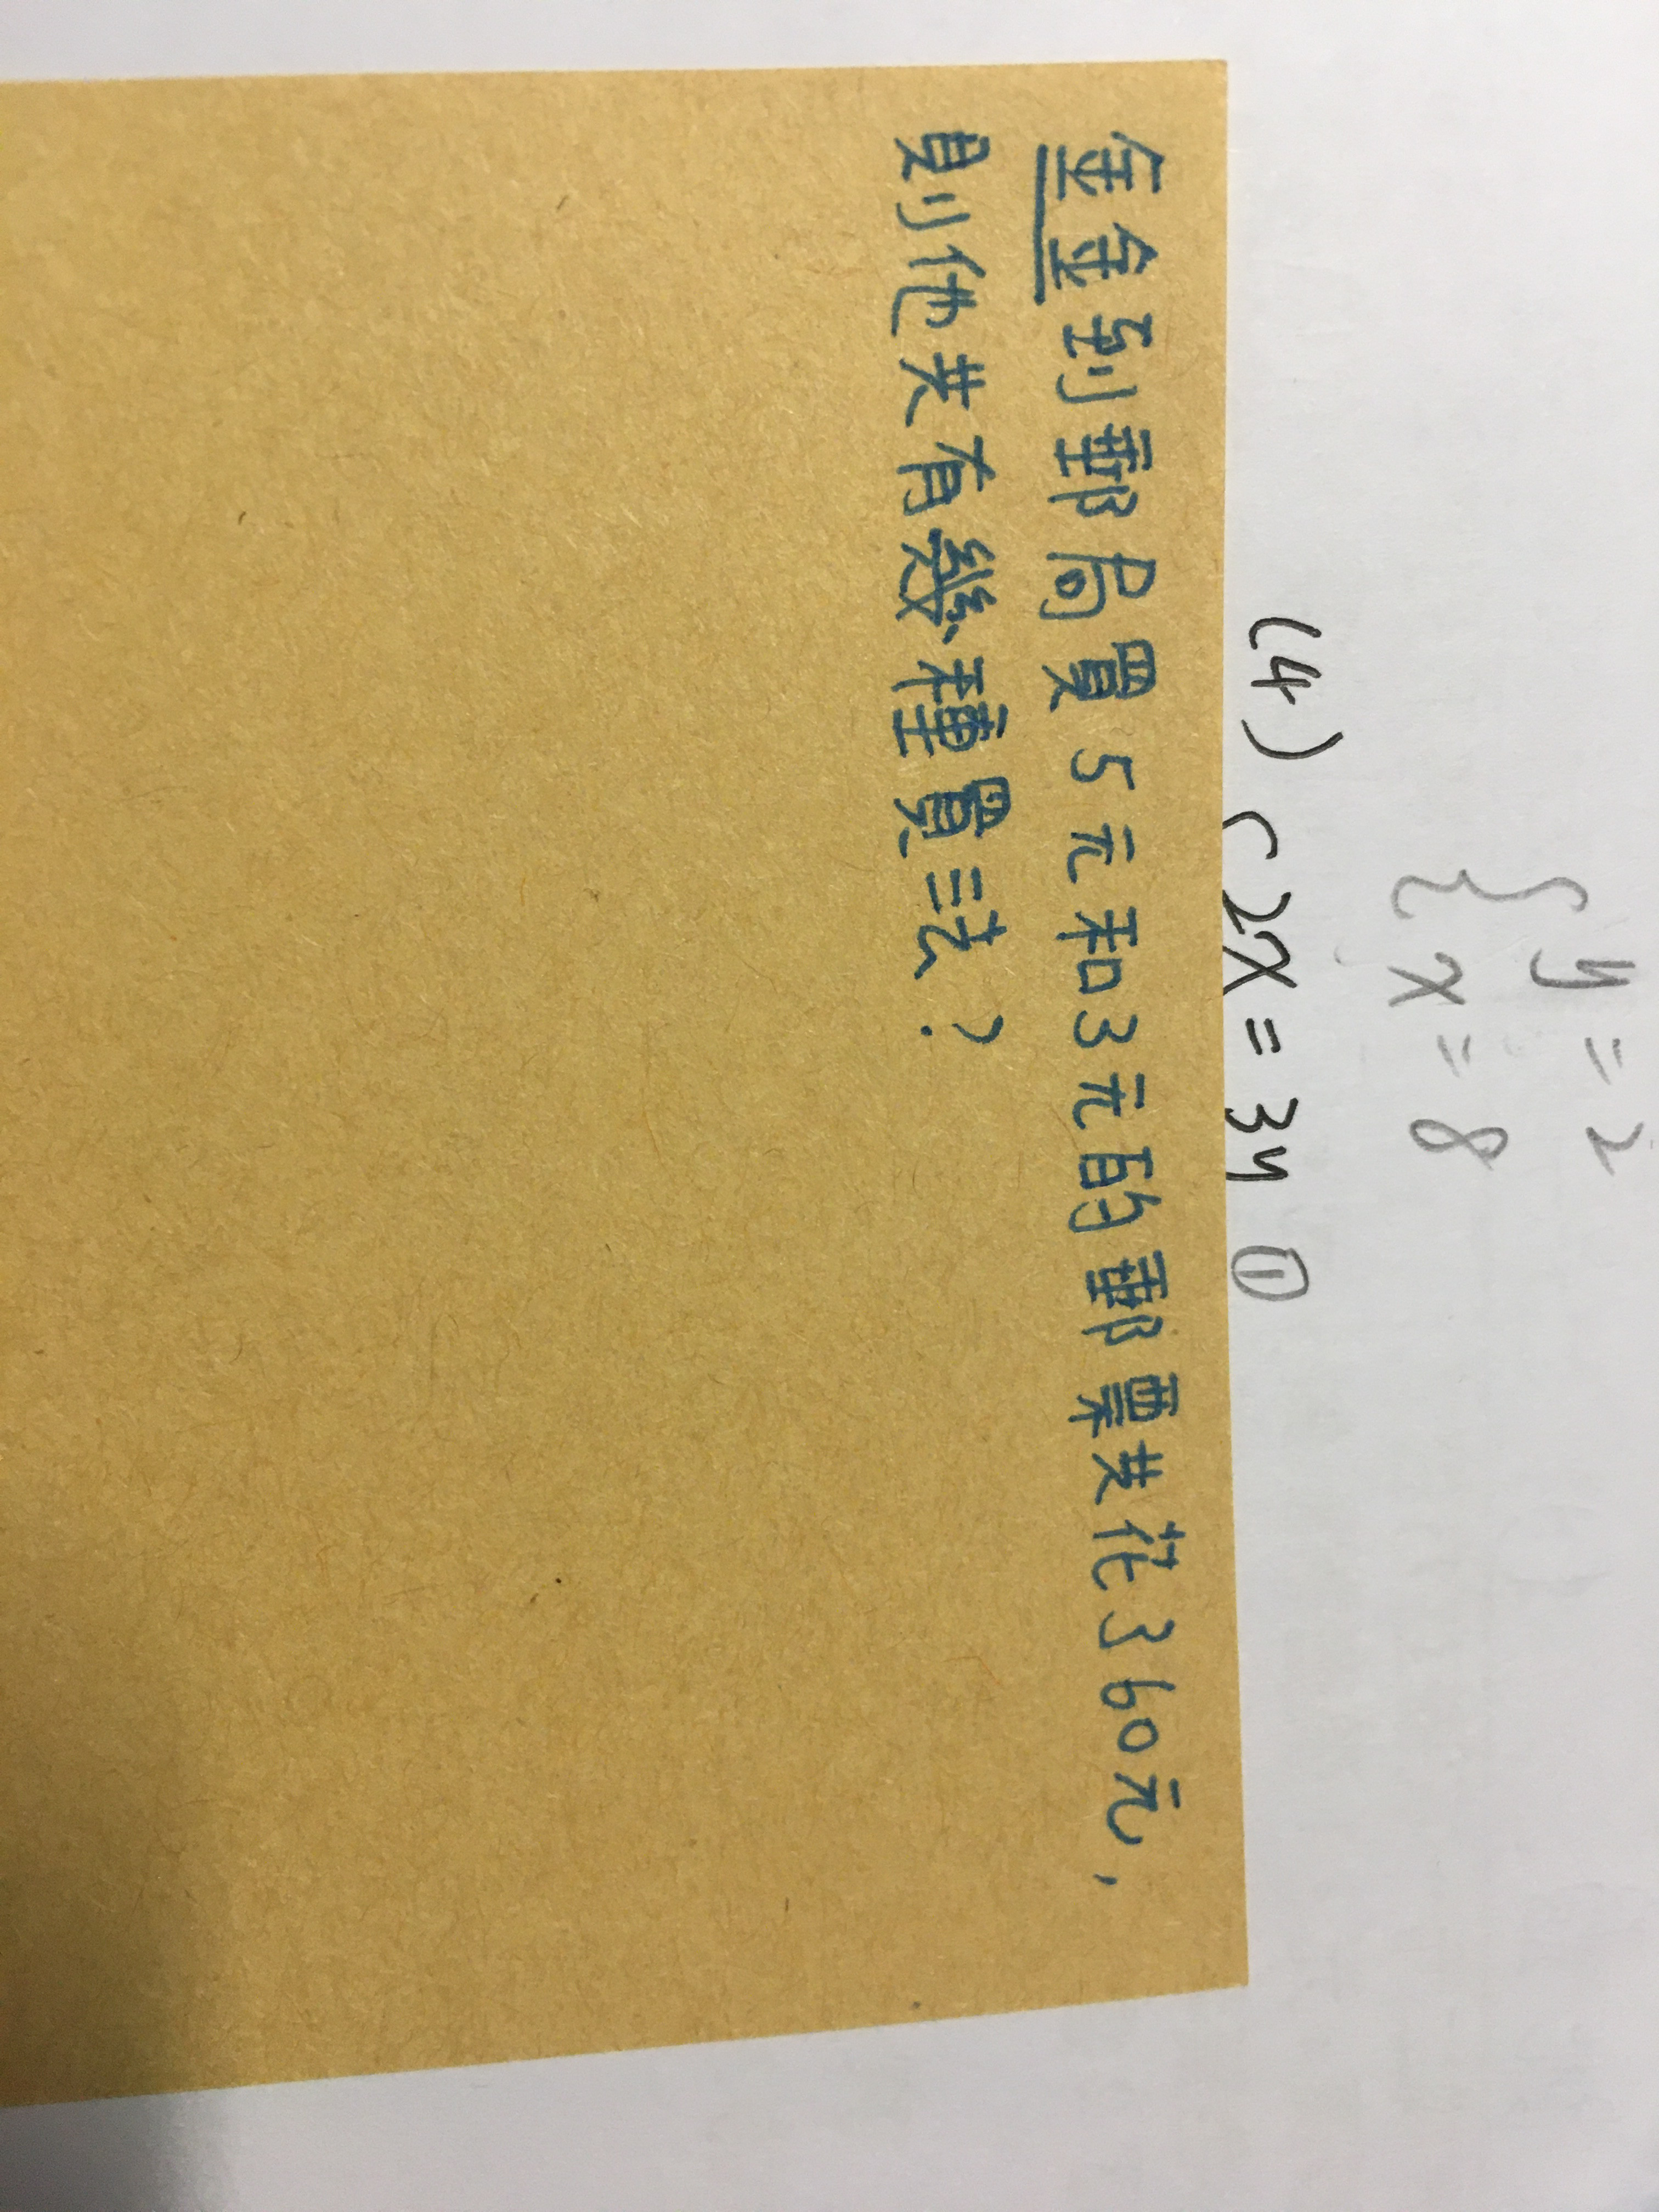 y = 2
x = 8
(4) 2x = 3y ①
金金到郵局買5元和3元的郵票共花360元,
則他共有幾種買法?